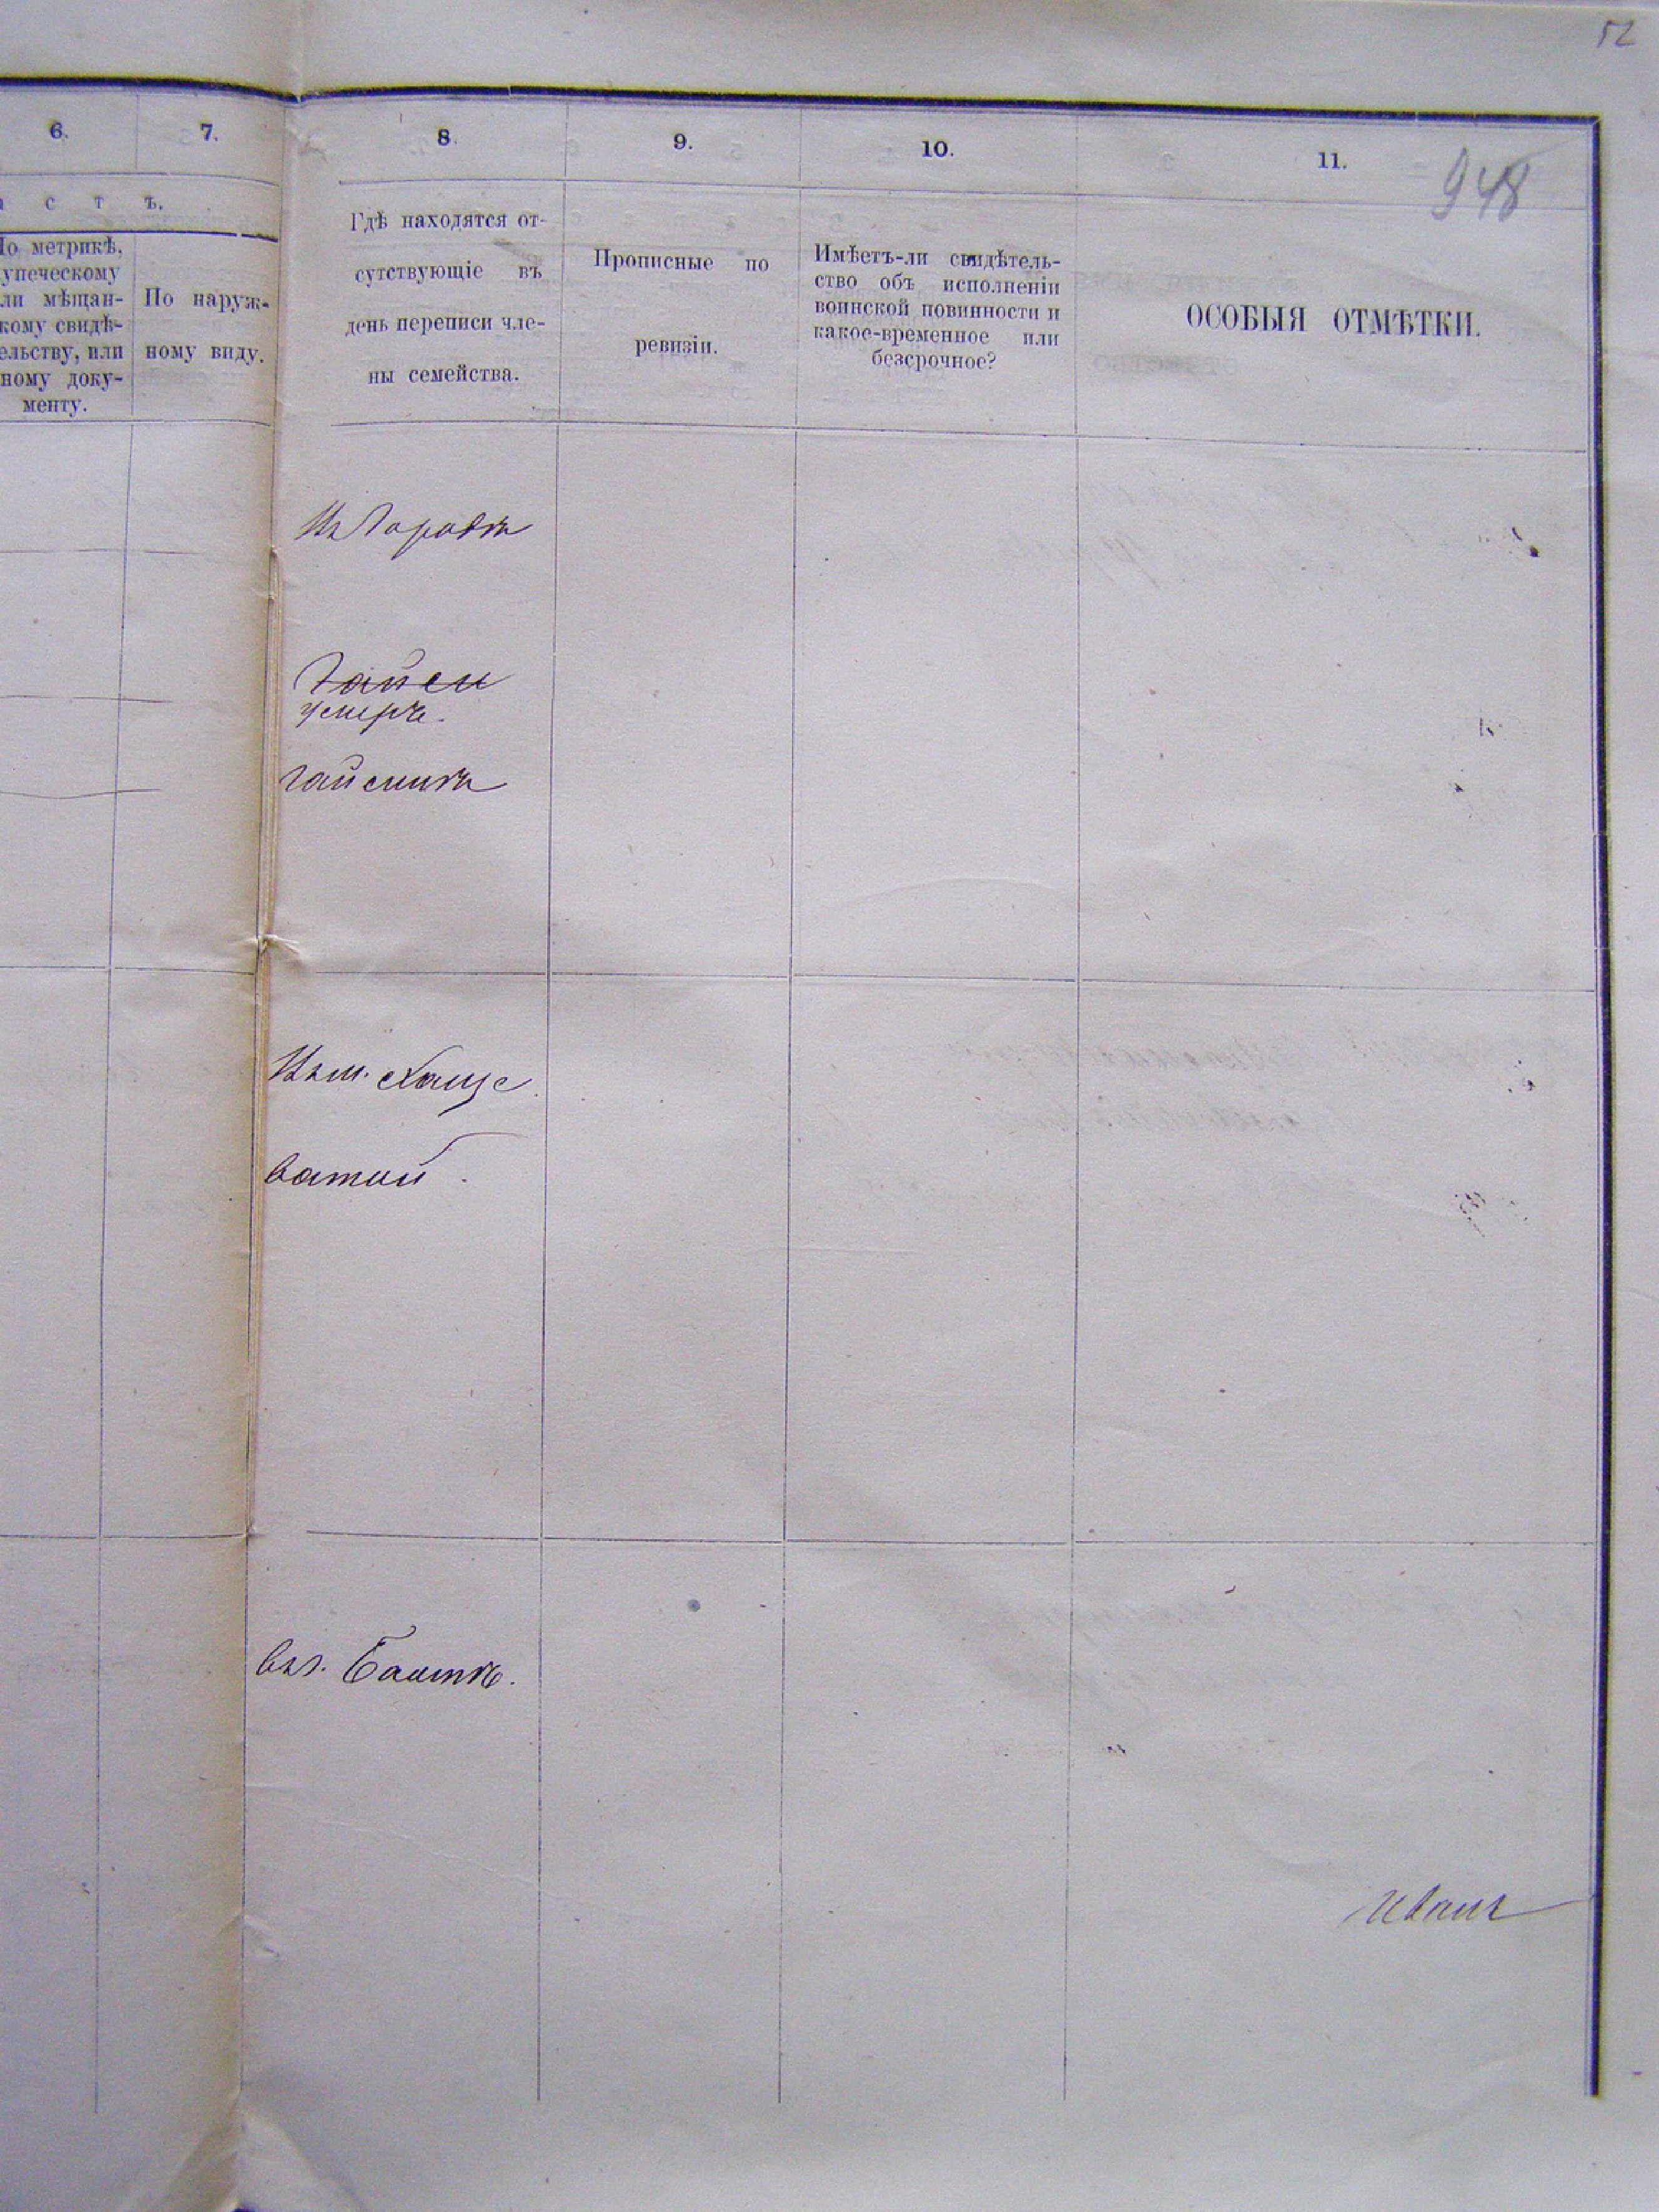 52
6.
7.
8.
9.
10.
11.
948
с т ъ.
По метрикѣ,
купеческому
или мѣщан-
скому свидѣ-
тельству, или
иному доку-
менту.
По наруж-
ному виду.
Гдѣ находятся от-
сутствующіе въ
день переписи чле-
ны семейства.
Прописные по
ревизіи.
Имѣетъ-ли свидѣтель-
ство объ исполненіи
воинской повинности и
какое-временное или
безсрочное?
ОСОБЫЯ ОТМѢТКИ.
Гайси
умеръ.
Гайсинъ
Въ м. Хаще
ватой.